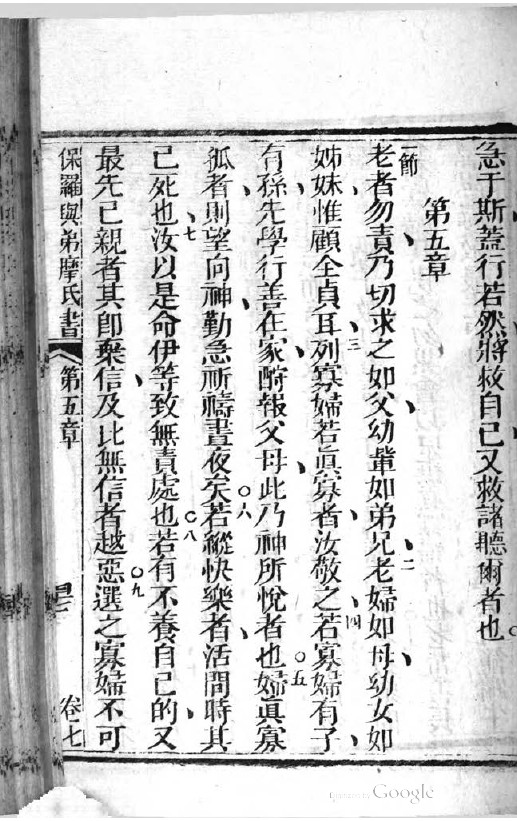 急于斯蓋行若然將救自己又救諸聽爾者也
第五章
一節
老者勿責乃切求之如父幼輩如弟兄老婦如母幼女如
二
姊妹惟顧全貞耳列寡婦若眞寡者汝敬之若寡婦有子
三
四
有孫先學行善在家酧報父母此乃神所悅者也婦眞寡
五
孤者則望向神勤急祈禱晝夜矣若縱快樂者活間時其
六
已死也汝以是命伊等致無責處也若有不養自己的又
七
八
最先己親者其卽棄信及比無信者越惡選之寡婦不可
九
保羅與弟摩氏書 第五章 卷七
Google